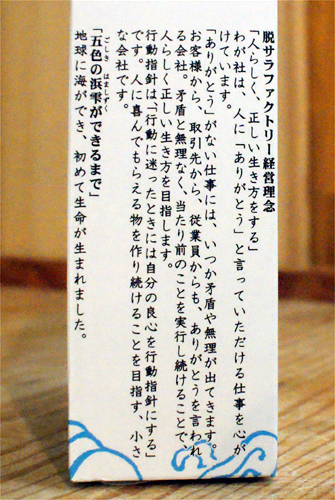 脱サラファクトリー経営理念
「人らしく、正しい生き方をする」
わが社は、人に「ありがとう」と言っていただける仕事を心が
けています。
「ありがとう」がない仕事には、いつか矛盾や無理が出てきます。
お客様から、取引先から、従業員からも、ありがとうを言われ
る会社。矛盾と無理なく、当たり前のことを実行し続けることで、
人らしく正しい生き方を目指します。
行動指針は「行動に迷ったときには自分の良心を行動指針にする」
です。人に喜んでもらえる物を作り続けることを目指す、小さ
な会社です。
「五色の浜雫ができるまで」
ごしき はましずく
地球に海ができ、初めて生命が生まれました。